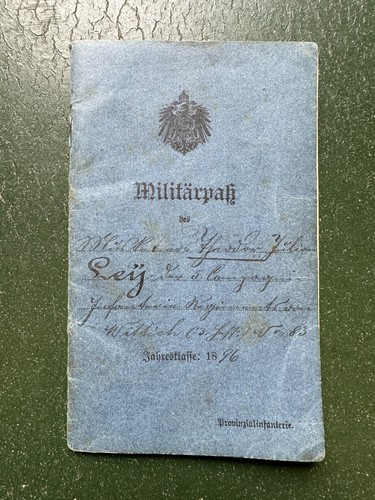 Militärpaß
des
Musketiers Theodor Julius
Ley der 5 Compagnie
Infanterie Regiments von
Wittich (3. Hess.) No 83
Jahresklasse: 1896
Provinzialinfanterie.